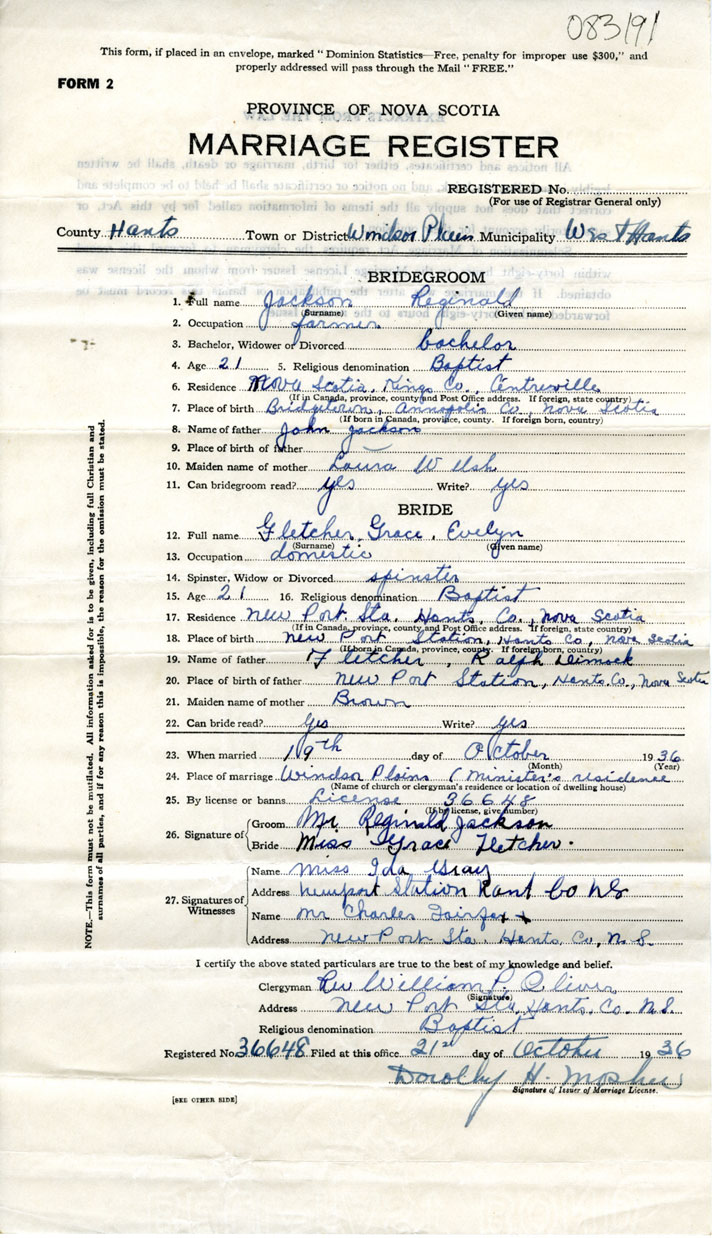 08391
This form, if placed in an envelope, marked "Dominion Statistics—Free, penalty for improper use $300," and
properly addressed will pass through the Mail "FREE."
FORM 2
PROVINCE OF NOVA SCOTIA
MARRIAGE REGISTER
REGISTERED No.
(For use of Registrar General only)
County Hants Town or District Windsor Plains Municipality West Hants
BRIDEGROOM
1. Full name Jackson Reginald
(Surname) (Given name)
2. Occupation farmer
3. Bachelor, Widower or Divorced bachelor
4. Age 21 5. Religious denomination Baptist
6. Residence Nova Scotia, Kings Co., Centreville
(If in Canada, province, county and Post Office address. If foreign, state country)
7. Place of birth Bridgetown, Annapolis Co., Nova Scotia
(If born in Canada, province, county. If foreign born, country)
8. Name of father John Jackson
9. Place of birth of father
10. Maiden name of mother Laura Welsh
11. Can bridegroom read? yes Write? yes
BRIDE
12. Full name Fletcher, Grace, Evelyn
(Surname) (Given name)
13. Occupation domestic
14. Spinster, Widow or Divorced spinster
15. Age 21 16. Religious denomination Baptist
17. Residence New Port Sta. Hants, Co., Nova Scotia
(If in Canada, province, county and Post Office address. If foreign, state country)
18. Place of birth New Port Station, Hants Co, Nova Scotia
(If born in Canada, province, county. If foreign born, country)
19. Name of father Fletcher, Ralph Dimock
20. Place of birth of father New Port Station, Hants. Co., Nova Scotia
21. Maiden name of mother Brown
22. Can bride read? yes Write? yes
23. When married 19th day of October 1936
(Month) (Year)
24. Place of marriage Windsor Plains (Minister's residence
(Name of church or clergyman's residence or location of dwelling house)
25. By license or banns License 36648
(If by license, give number)
26. Signature of Groom Mr Reginald Jackson
Bride Miss Grace Fletcher.
27. Signatures of Witnesses
Name Miss Ida Gray
Address Newport Station Hant Co NS
Name Mr Charles Fairfax
Address New Port Sta. Hants, Co, N.S.
I certify the above stated particulars are true to the best of my knowledge and belief.
Clergyman Rev William P. Oliver
(Signature)
Address New Port Sta, Hants, Co. N.S.
Religious denomination Baptist
Registered No. 36648 Filed at this office 21st day of October 1936
Dorothy H. Mosher
Signature of Issuer of Marriage License.
[SEE OTHER SIDE]
NOTE.—This form must not be mutilated. All information asked for is to be given, including full Christian and
surnames of all parties, and if for any reason this is impossible, the reason for the omission must be stated.